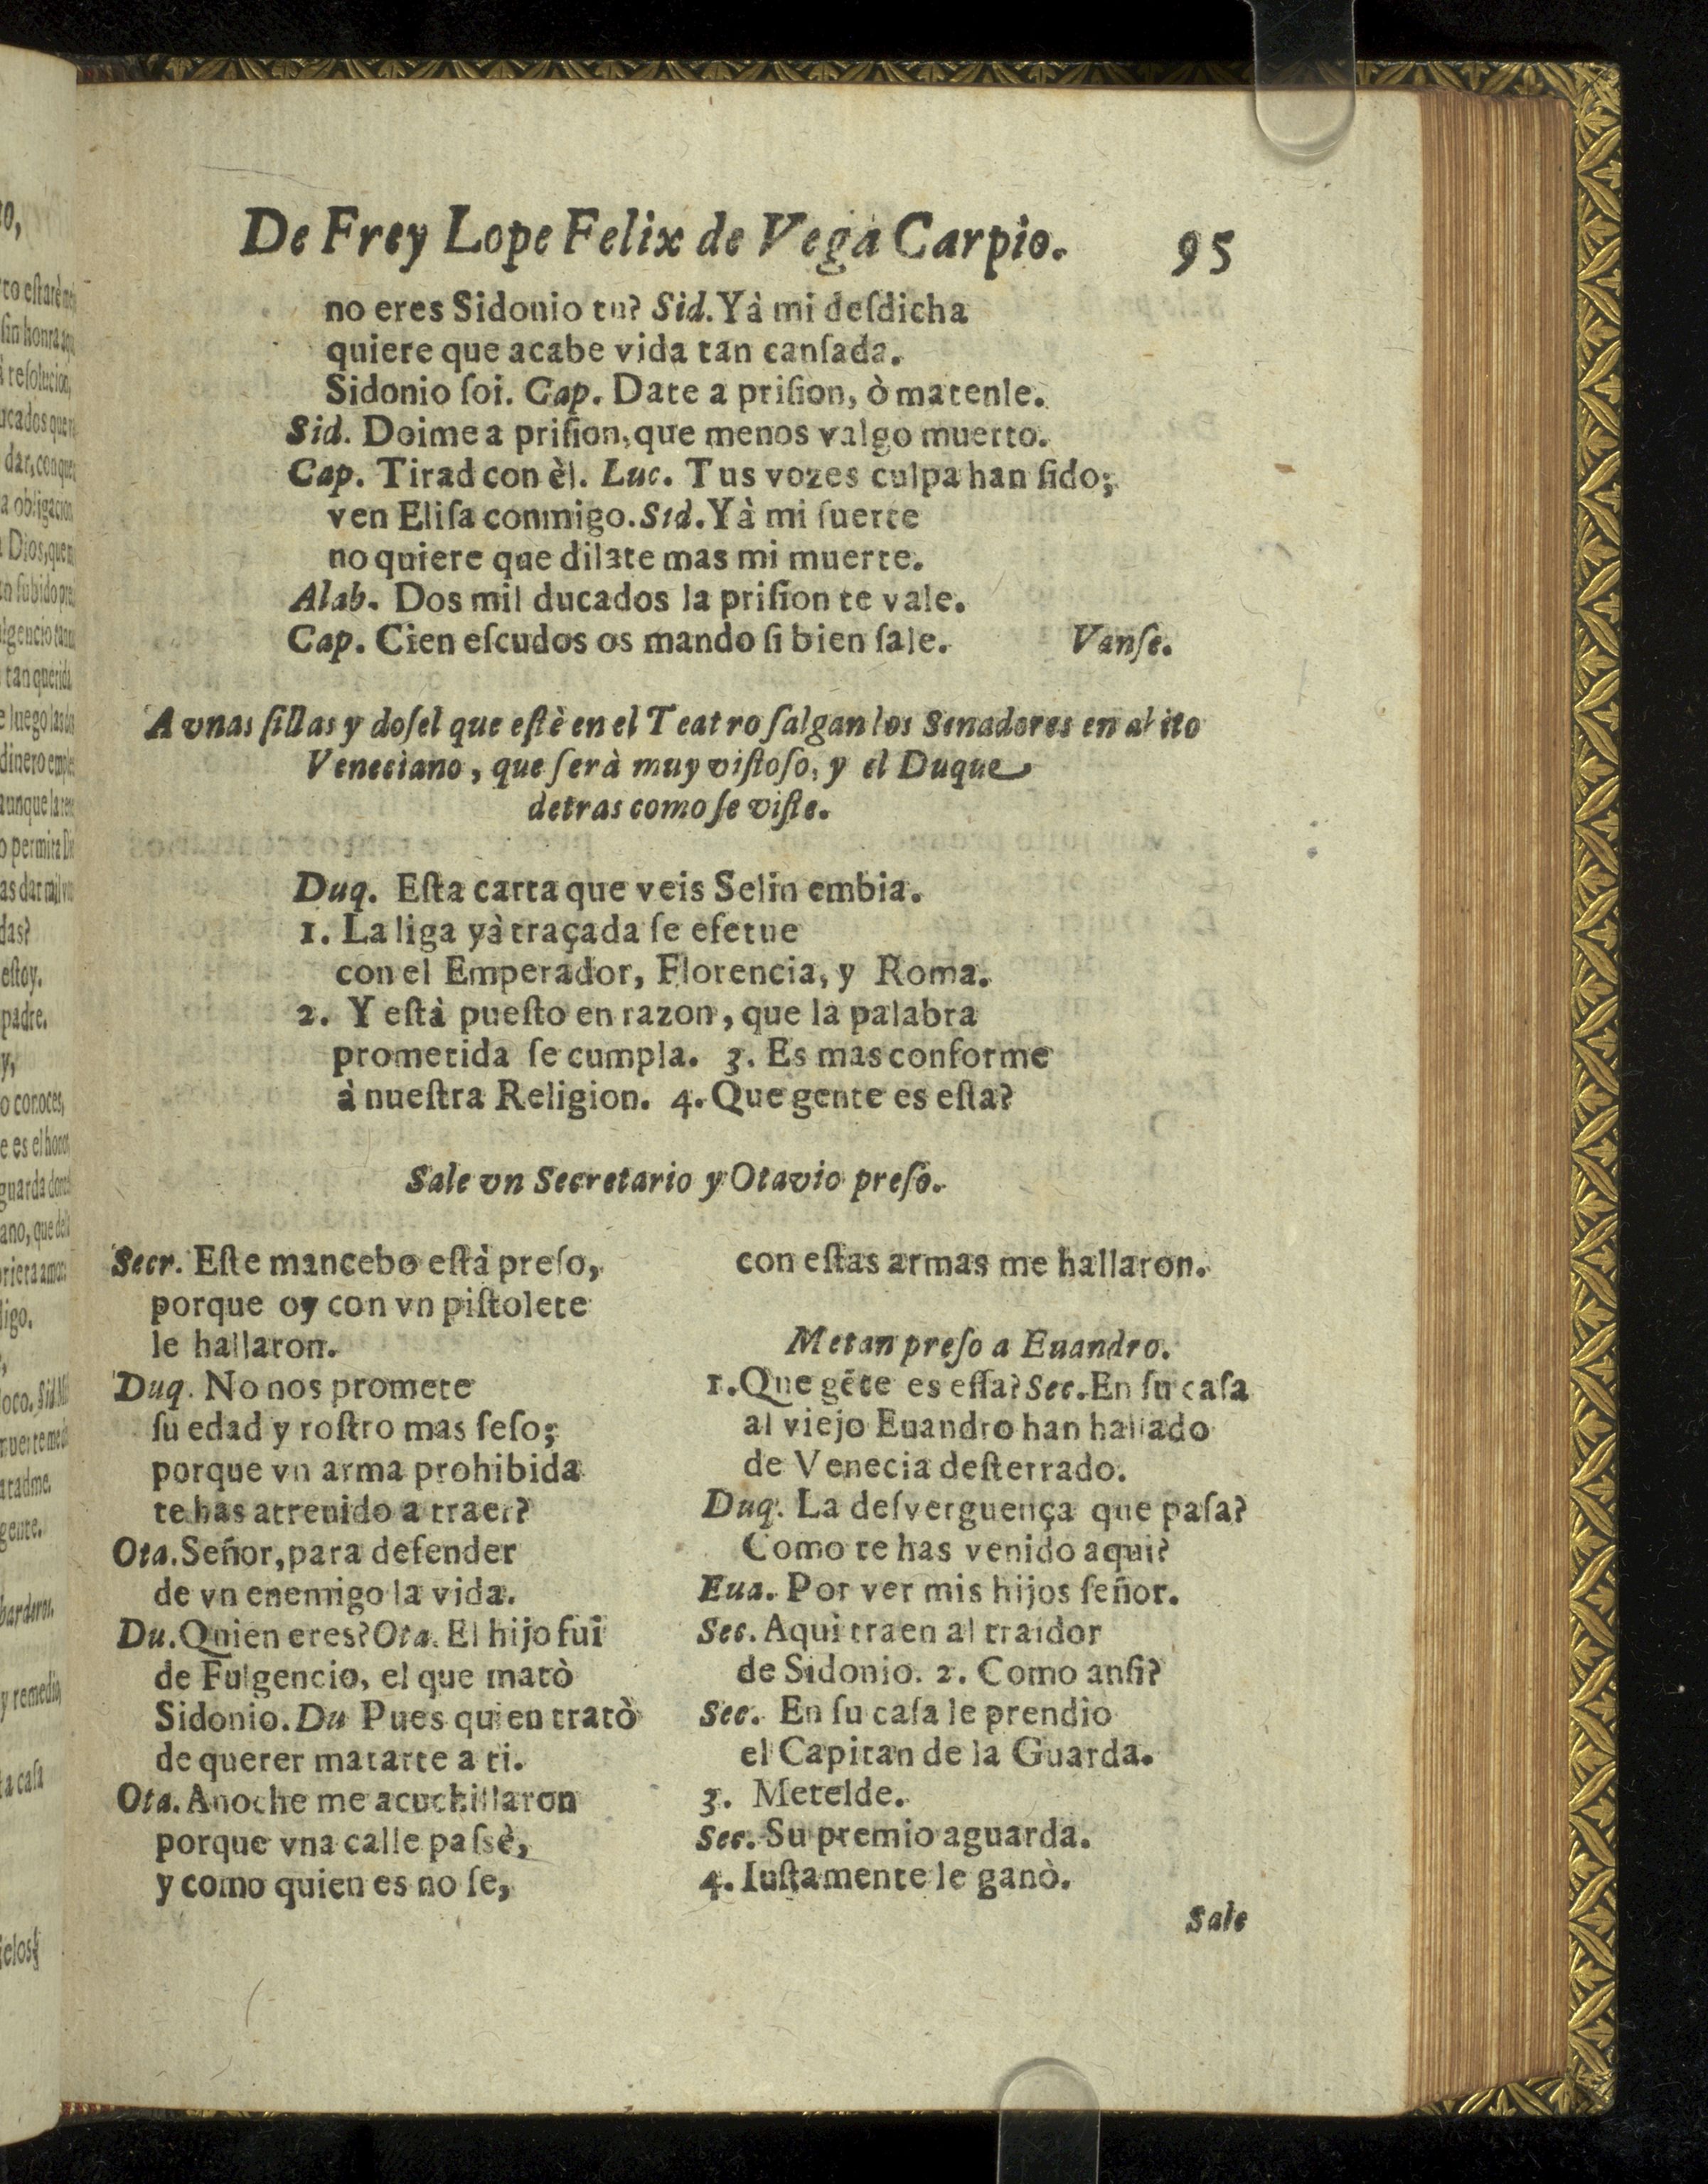 De Frey Lope Felix de Vega Carpio. 95
no eres Sidonio tu? Sid. Yà mi desdicha
quiere que acabe vida tan cansada.
Sidonio soi. Cap. Date a prision, ò matenle.
Sid. Doime a prision, que menos valgo muerto.
Cap. Tirad con èl. Luc. Tus vozes culpa han sido;
ven Elisa conmigo. Sid. Yà mi suerte
no quiere que dilate mas mi muerte.
Alab. Dos mil ducados la prision te vale.
Cap. Cien escudos os mando si bien sale. Vanse.
A vnas sillas y dosel que estè en el Teatro salgan los Senadores en abito
Veneciano, que serà muy vistoso, y el Duque
detras como se viste.
Duq. Esta carta que veis Selin embia.
1. La liga yà traçada se efetue
con el Emperador, Florencia, y Roma.
2. Y està puesto en razon, que la palabra
prometida se cumpla. 3. Es mas conforme
à nuestra Religion. 4. Que gente es esta?
Sale vn Secretario y Otavio preso.
Secr. Este mancebo està preso,
porque oy con vn pistolete
le hallaron.
Duq. No nos promete
su edad y rostro mas seso;
porque vn arma prohibida
te has atreuido a traer?
Ota. Señor, para defender
de vn enemigo la vida.
Du. Quien eres? Ota. El hijo fui
de Fulgencio, el que matò
Sidonio. Du Pues quien tratò
de querer matarte a ti.
Ota. Anoche me acuchillaron
porque vna calle passè,
y como quien es no se,
con estas armas me hallaron.
Metan preso a Euandro.
1. Que gẽte es essa? Sec. En su casa
al viejo Euandro han hallado
de Venecia desterrado.
Duq. La desverguença que pasa?
Como te has venido aqui?
Eua. Por ver mis hijos señor.
Sec. Aqui traen al traidor
de Sidonio. 2. Como ansi?
Sec. En su casa le prendio
el Capitan de la Guarda.
3. Metelde.
Sec. Su premio aguarda.
4. Iustamente le ganò.
Sale